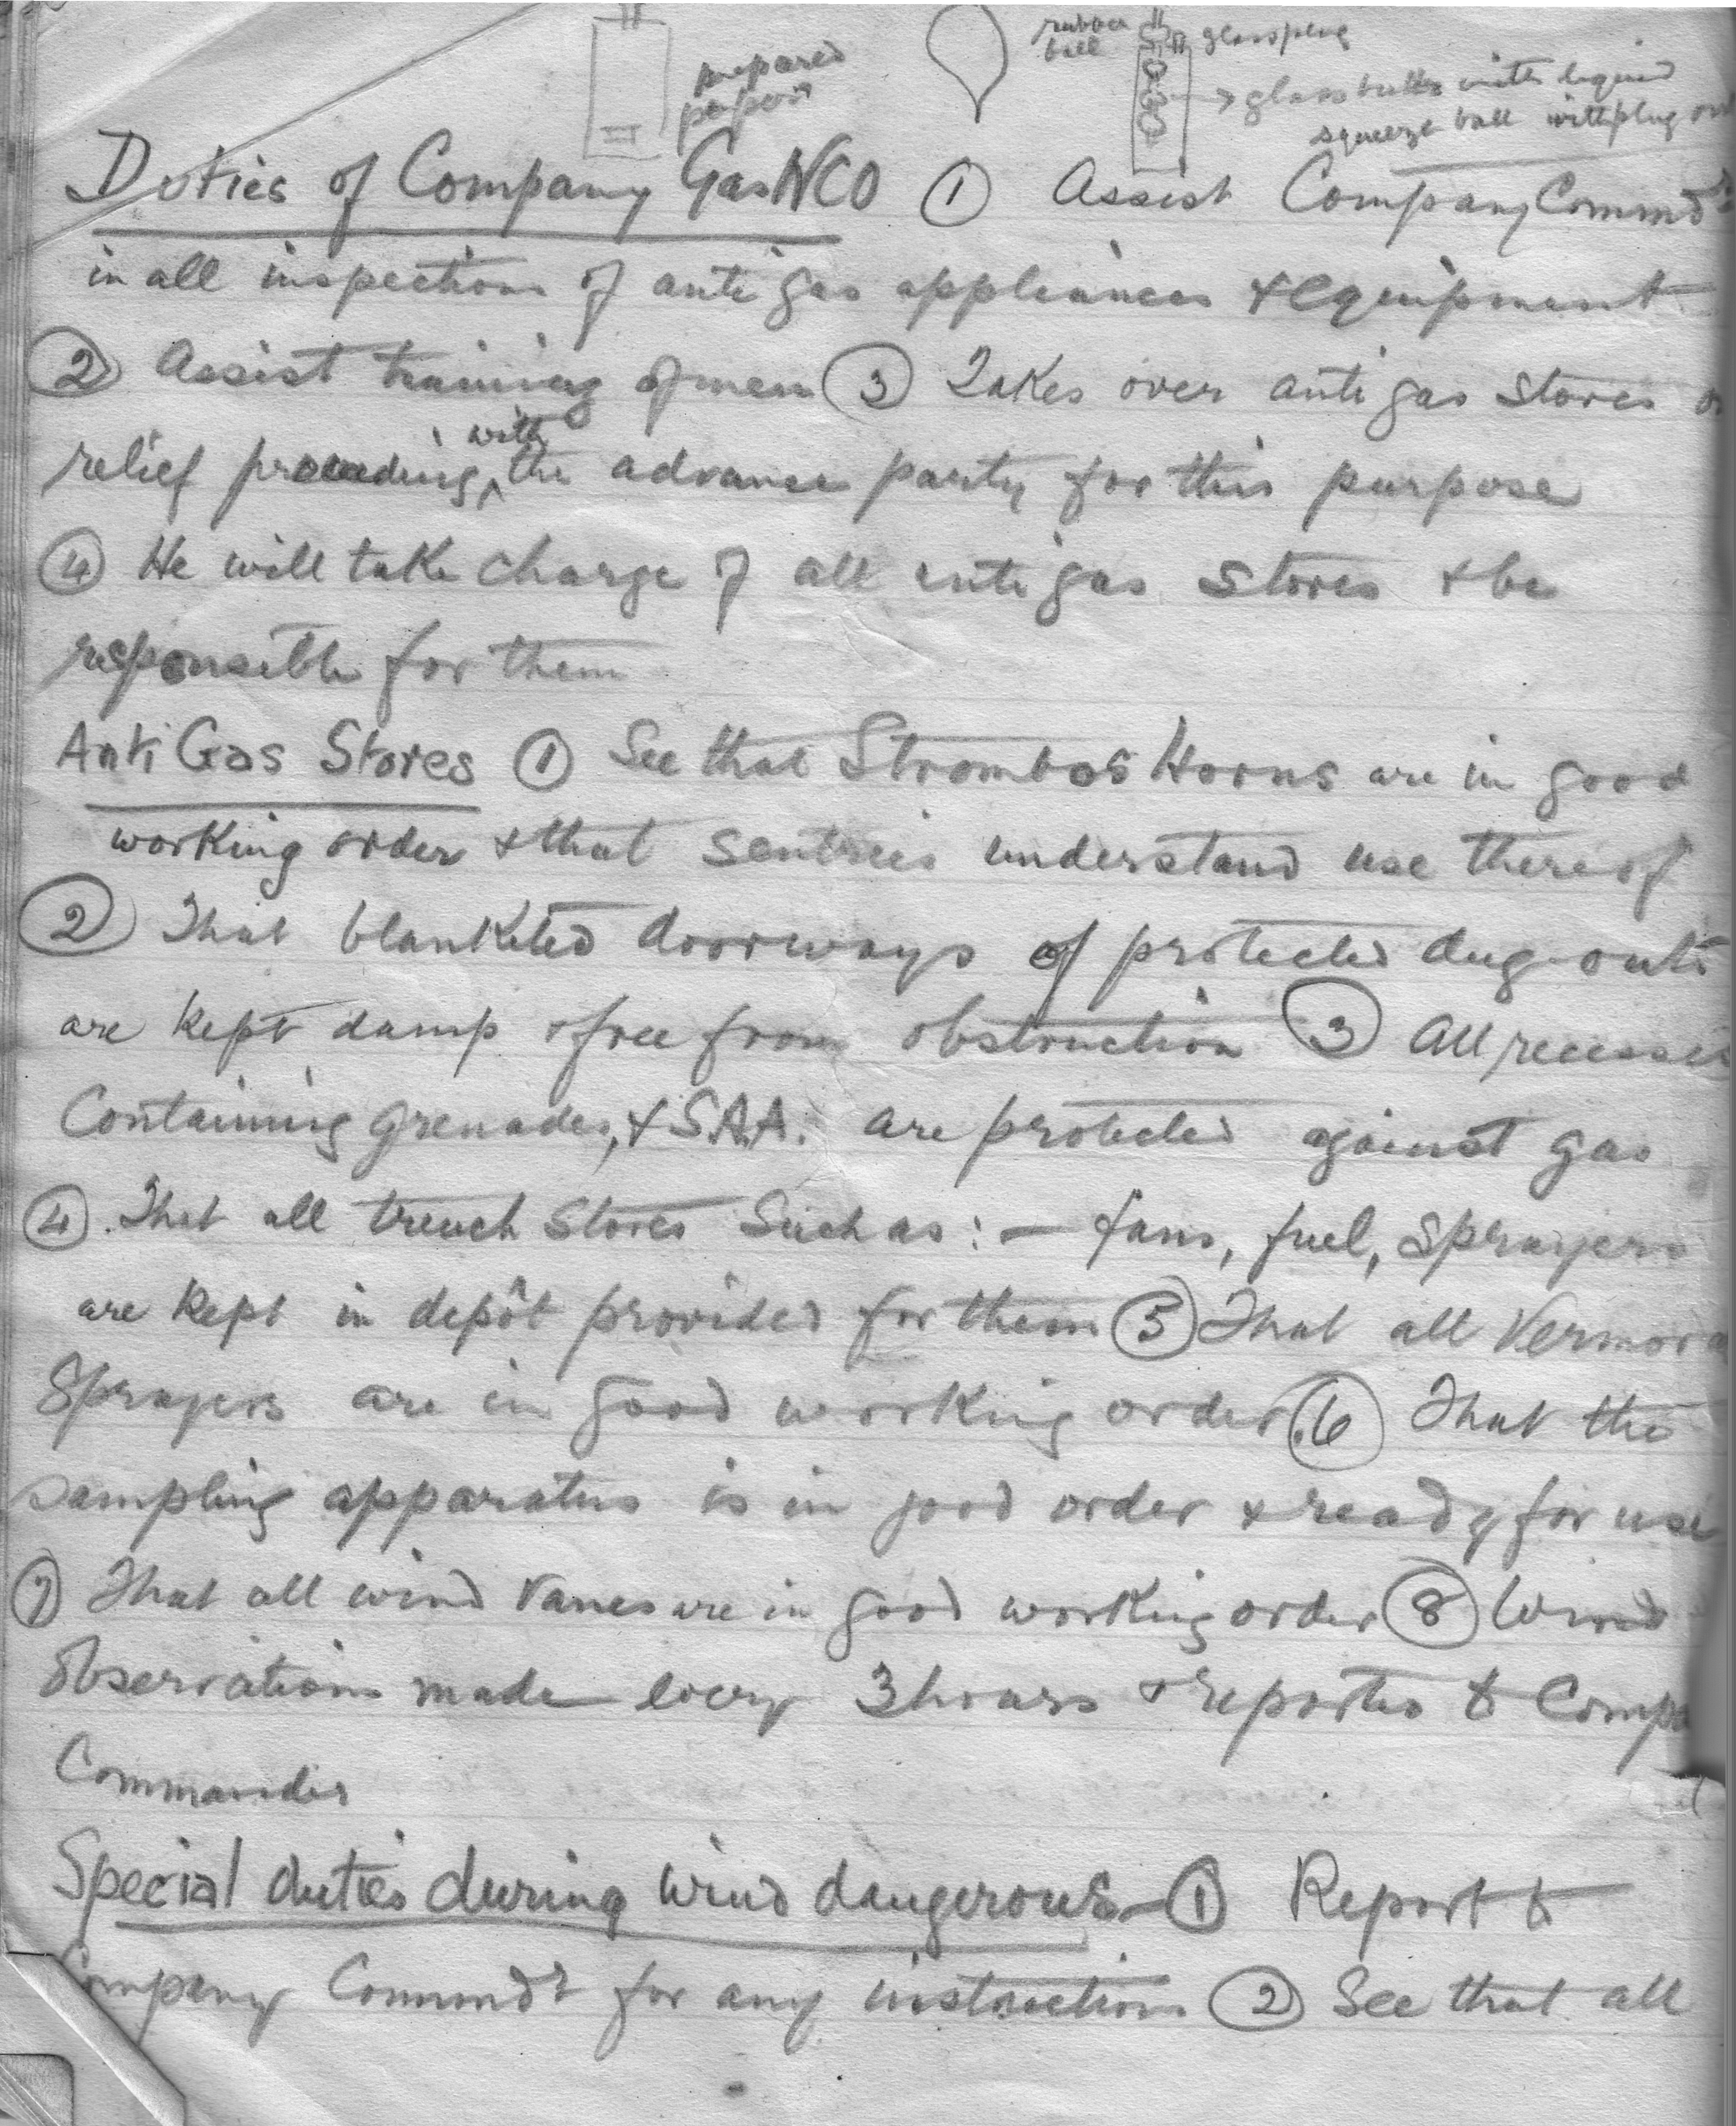 prepared
paper
rubber
ball
glass plug
glass bulbs with liquid
squeeze ball with plug out
Duties of Company Gas NCO ① Assist Company Commdr
in all inspections of anti gas appliances & equipment
② Assist training of men ③ Takes over anti gas stores
relief proceeding with the advance party for this purpose
④ He will take charge of all anti gas stores & be
responsible for them
Anti Gas Stores ① See that Strombos Horns are in good
working order & that sentries understand use thereof
② That blanketed doorways of protected dug-outs
are kept damp & free from obstruction ③ All recesses
Containing grenades, & S.A.A. are protected against gas
④ That all trench stores such as:— fans, fuel, sprayers
are kept in depôt provided for them ⑤ That all Vermor
Sprayers are in good working order. ⑥ That the
sampling apparatus is in good order & ready for use
⑦ That all wind vanes are in good working order ⑧ Wind
observations made every 3 hours & reported to Compa
Commander
Special duties during wind dangerous— ① Report to
Company Commdr for any instructions ② See that all